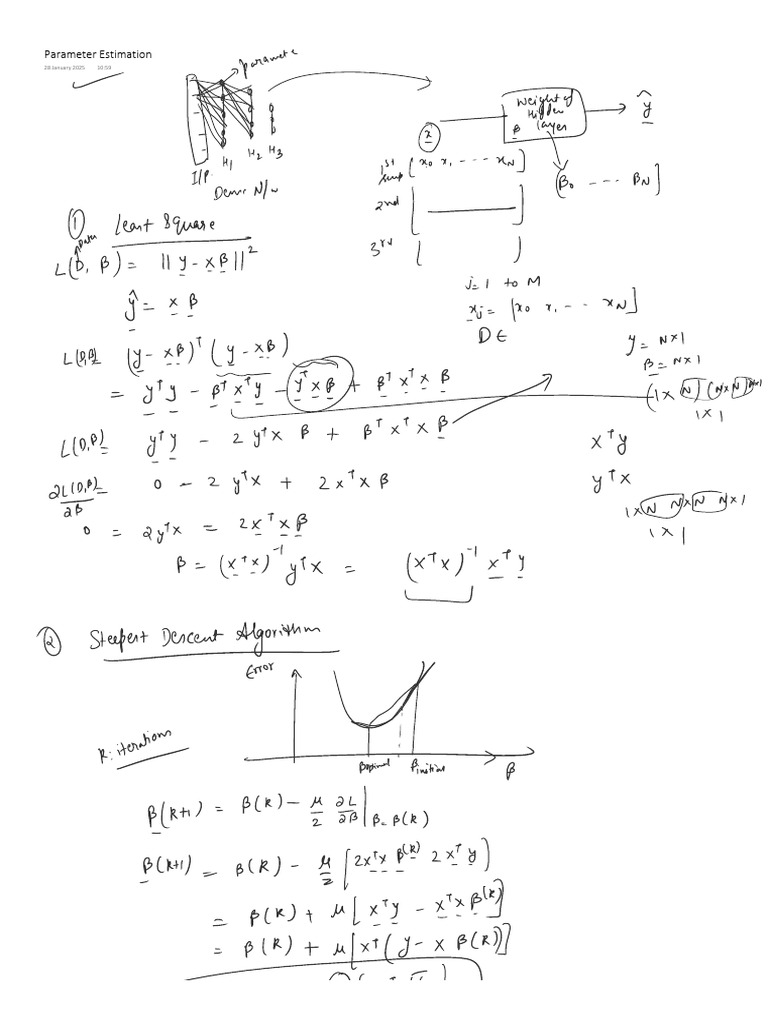 Parameter Estimation
28 January 2025 10:59
parameter
I/P.
H1 H2 H3
Dense N/w
x
Weight of
Hidden
layer
β
ŷ
1st [x0 x1 ---- xN]
[β0 ---- βN]
2nd
3rd
① Least Square
Data
L(D, β) = || y - xβ ||²
j=1 to M
ŷ = x β
xj = [x0 x1 -- xN]
D ∈
L(D,β) = (y - xβ)ᵀ (y - xβ)
y = N×1
β = N×1
= yᵀy - βᵀxᵀy - yᵀxβ + βᵀxᵀxβ
(1×N) (N×N) N×1
1×1
L(D,β) = yᵀy - 2yᵀx β + βᵀxᵀxβ
xᵀy
∂L(D,β)/∂β = 0 - 2yᵀx + 2xᵀxβ
yᵀx
1×N N×N N×1
1×1
0 = 2yᵀx = 2xᵀxβ
β = (xᵀx)⁻¹ yᵀx = (xᵀx)⁻¹ xᵀy
② Steepest Descent Algorithm
Error
k: iterations
βoptimal βinitial β
β(k+1) = β(k) - μ/2 ∂L/∂β |β=β(k)
β(k+1) = β(k) - μ/2 [2xᵀx β(k) 2xᵀy]
= β(k) + μ[xᵀy - xᵀxβ(k)]
= β(k) + μ[xᵀ(y - xβ(k))]